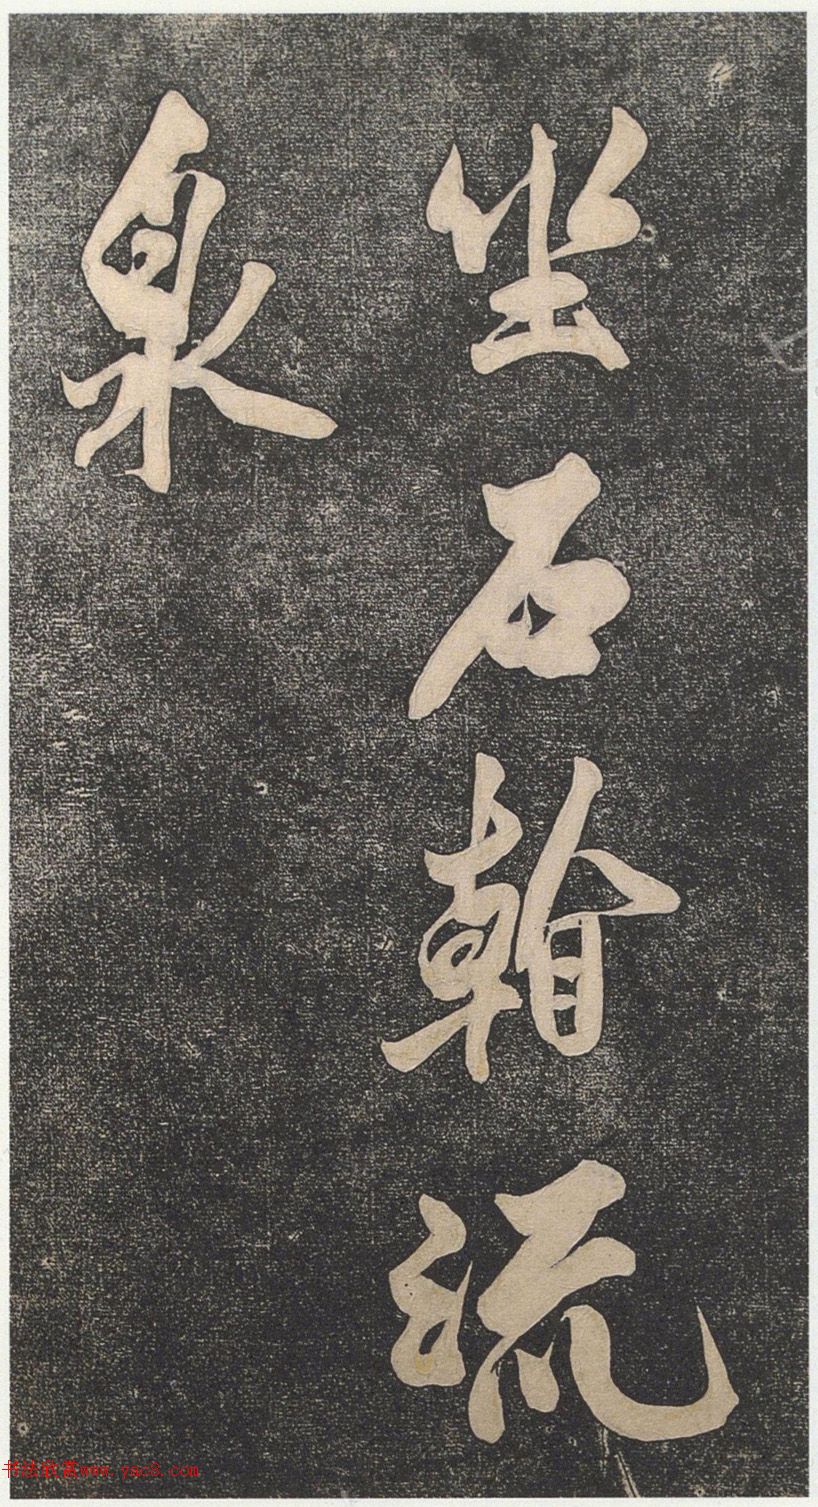 坐石翰流
泉
书法欣赏www.yac8.com